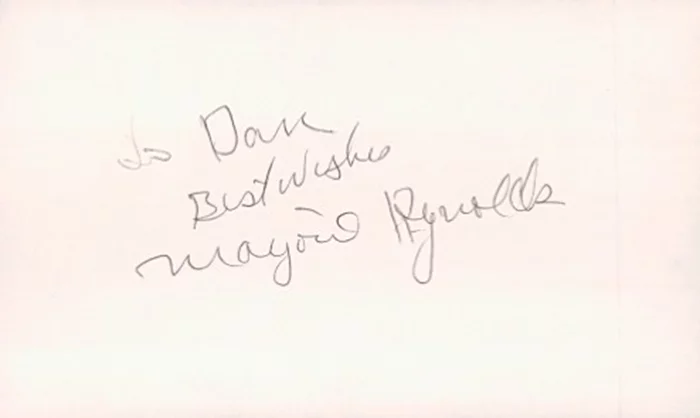 To Dan
Best Wishes
Marjorie Reynolds